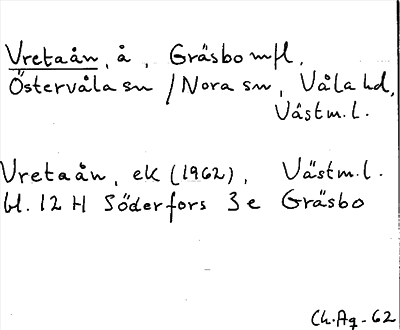 Vretaån, å, Gräsbo mfl,
Östervåla sn / Nora sn, Våla hd,
Västm.l.
Vretaån, ek (1962), Västm.l.
bl. 12 H Söderfors 3 e Gräsbo
Ch.Ag-62